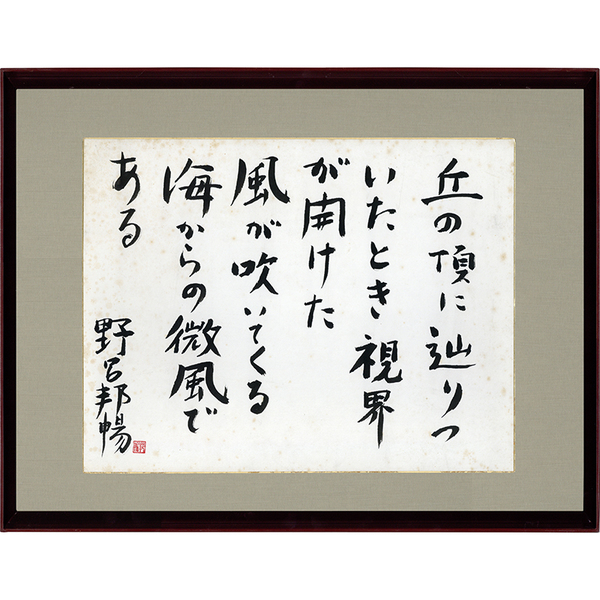 丘の頂に辿りつ
いたとき視界
が開けた
風が吹いてくる
海からの微風で
ある
野呂邦暢